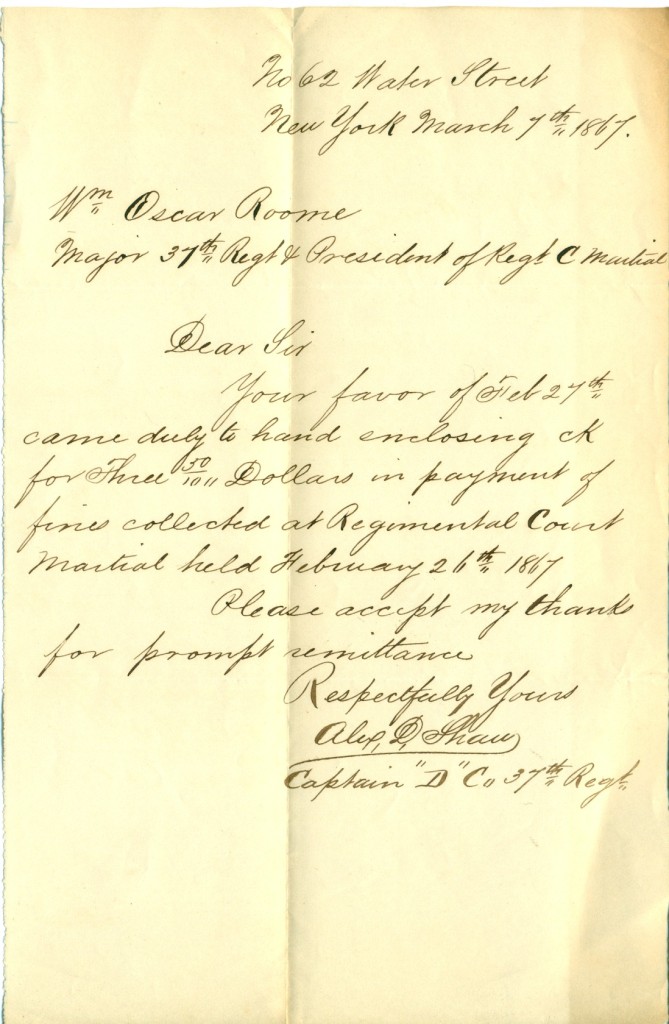 No 62 Water Street
New York March 7th 1867.
Wm Oscar Roome
Major 37th Regt & President of Regt C Martial
Dear Sir
Your favor of Feb 27th
came duly to hand enclosing ck
for Three 50/100 Dollars in payment of
fines collected at Regimental Court
Martial held February 26th 1867
Please accept my thanks
for prompt remittance
Respectfully Yours
Alex, D, Shaw
Captain "D" Co 37th Regt.